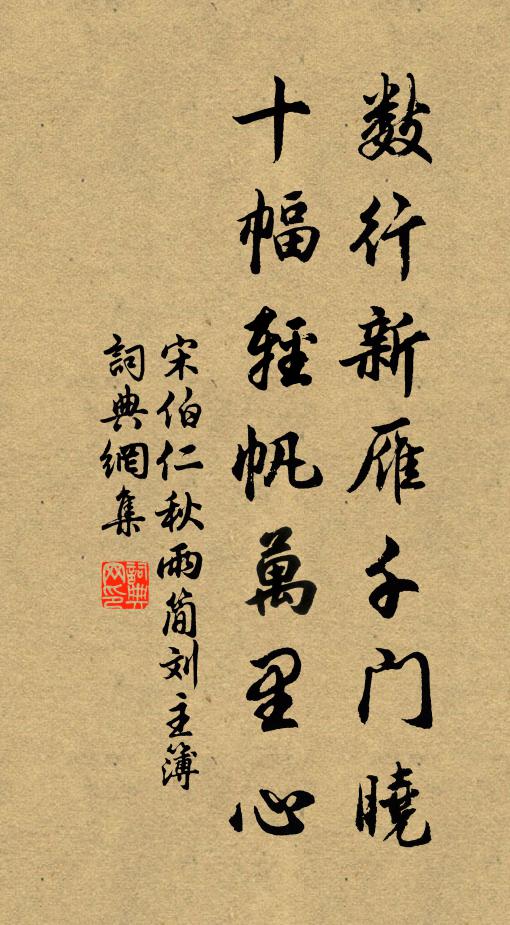 数行新雁千门曉
十幅輕帆萬里心
宋伯仁秋雨简刘主簿
詞典網集
詞典網印